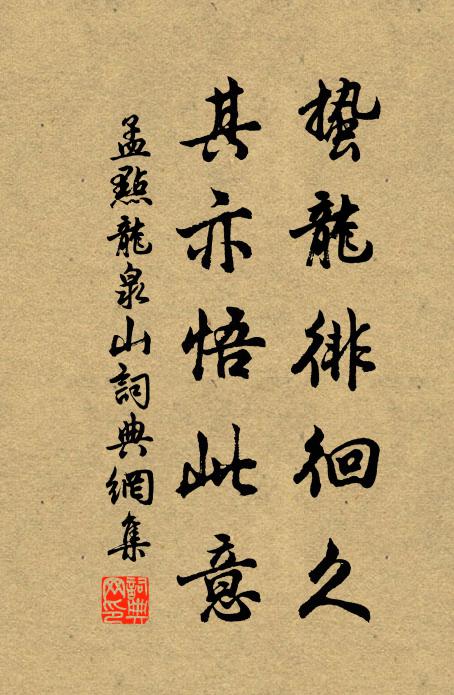 蟄龍徘徊久
其亦悟此意
孟點龍泉山詞典網集
詞典網印